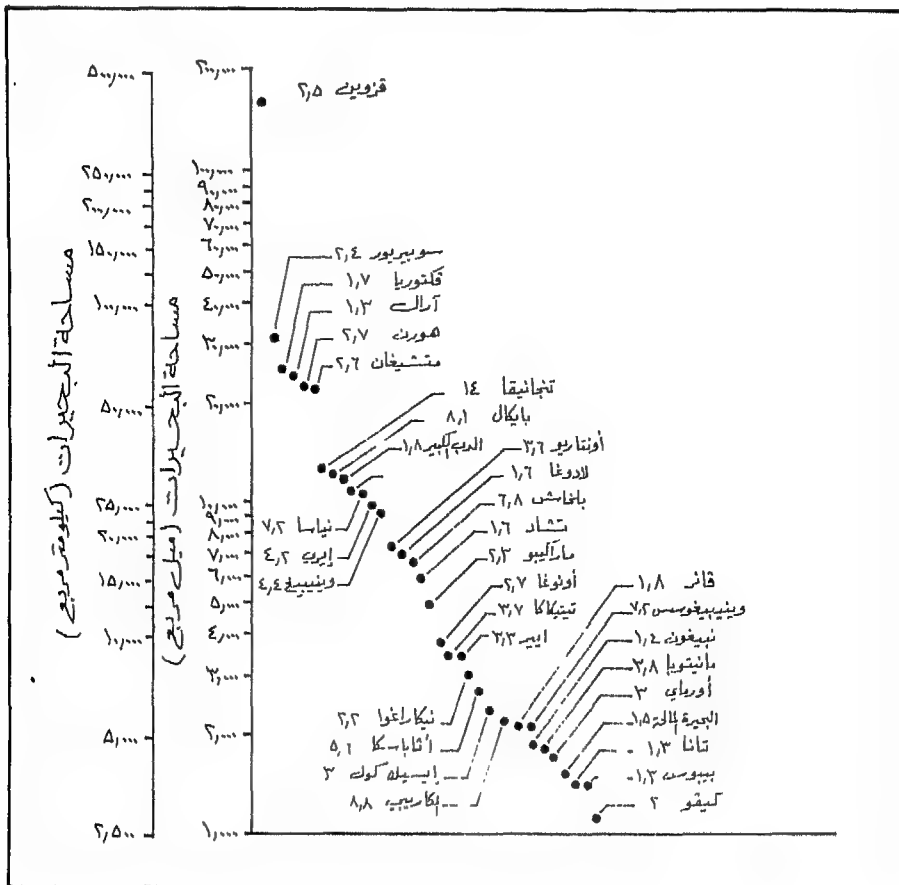 ٥٠٠,٠٠٠
٢٥٠,٠٠٠
٢٠٠,٠٠٠
١٥٠,٠٠٠
١٠٠,٠٠٠
٥٠,٠٠٠
٢٥,٠٠٠
٢٠,٠٠٠
١٥,٠٠٠
١٠,٠٠٠
٥,٠٠٠
٢,٥٠٠
مساحة البحيرات (كيلومتر مربع)
٢٠٠,٠٠٠
١٠٠,٠٠٠
٩٠,٠٠٠
٨٠,٠٠٠
٧٠,٠٠٠
٦٠,٠٠٠
٥٠,٠٠٠
٤٠,٠٠٠
٣٠,٠٠٠
٢٠,٠٠٠
١٠,٠٠٠
٩,٠٠٠
٨,٠٠٠
٧,٠٠٠
٦,٠٠٠
٥,٠٠٠
٤,٠٠٠
٣,٠٠٠
٢,٠٠٠
١,٠٠٠
مساحة البحيرات (ميل مربع)
قزوين ٢,٥
سوبيريور ٢,٤
فكتوريا ١,٧
آرال ١,٣
هورن ٢,٧
متشيغان ٢,٦
تنجانيقا ١٤
بايكال ٨,١
الدب الكبير ١,٨
نياسا ٧,٢
إيري ٤,٢
وينيبيغ ٤,٤
أونتاريو ٣,٦
لادوغا ١,٦
بلخاش ٦,٨
تشاد ١,٦
مارآليبو ٢,٢
أونوغا ٢,٧
تيتيكاكا ٣,٧
ايير ٣,٣
نيكاراغوا ٢,٢
أثاباسكا ٥,٦
إيسيك كول ٣
٨,٨
فانر ١,٨
وينيبيغوسس ٧,٢
نبيغون ١,٤
مانيتوبا ٣,٨
أورماي ٣
البحيرة المالحة ١,٥
تانا ١,٣
بيبوس ١,٣
كيقو ٢